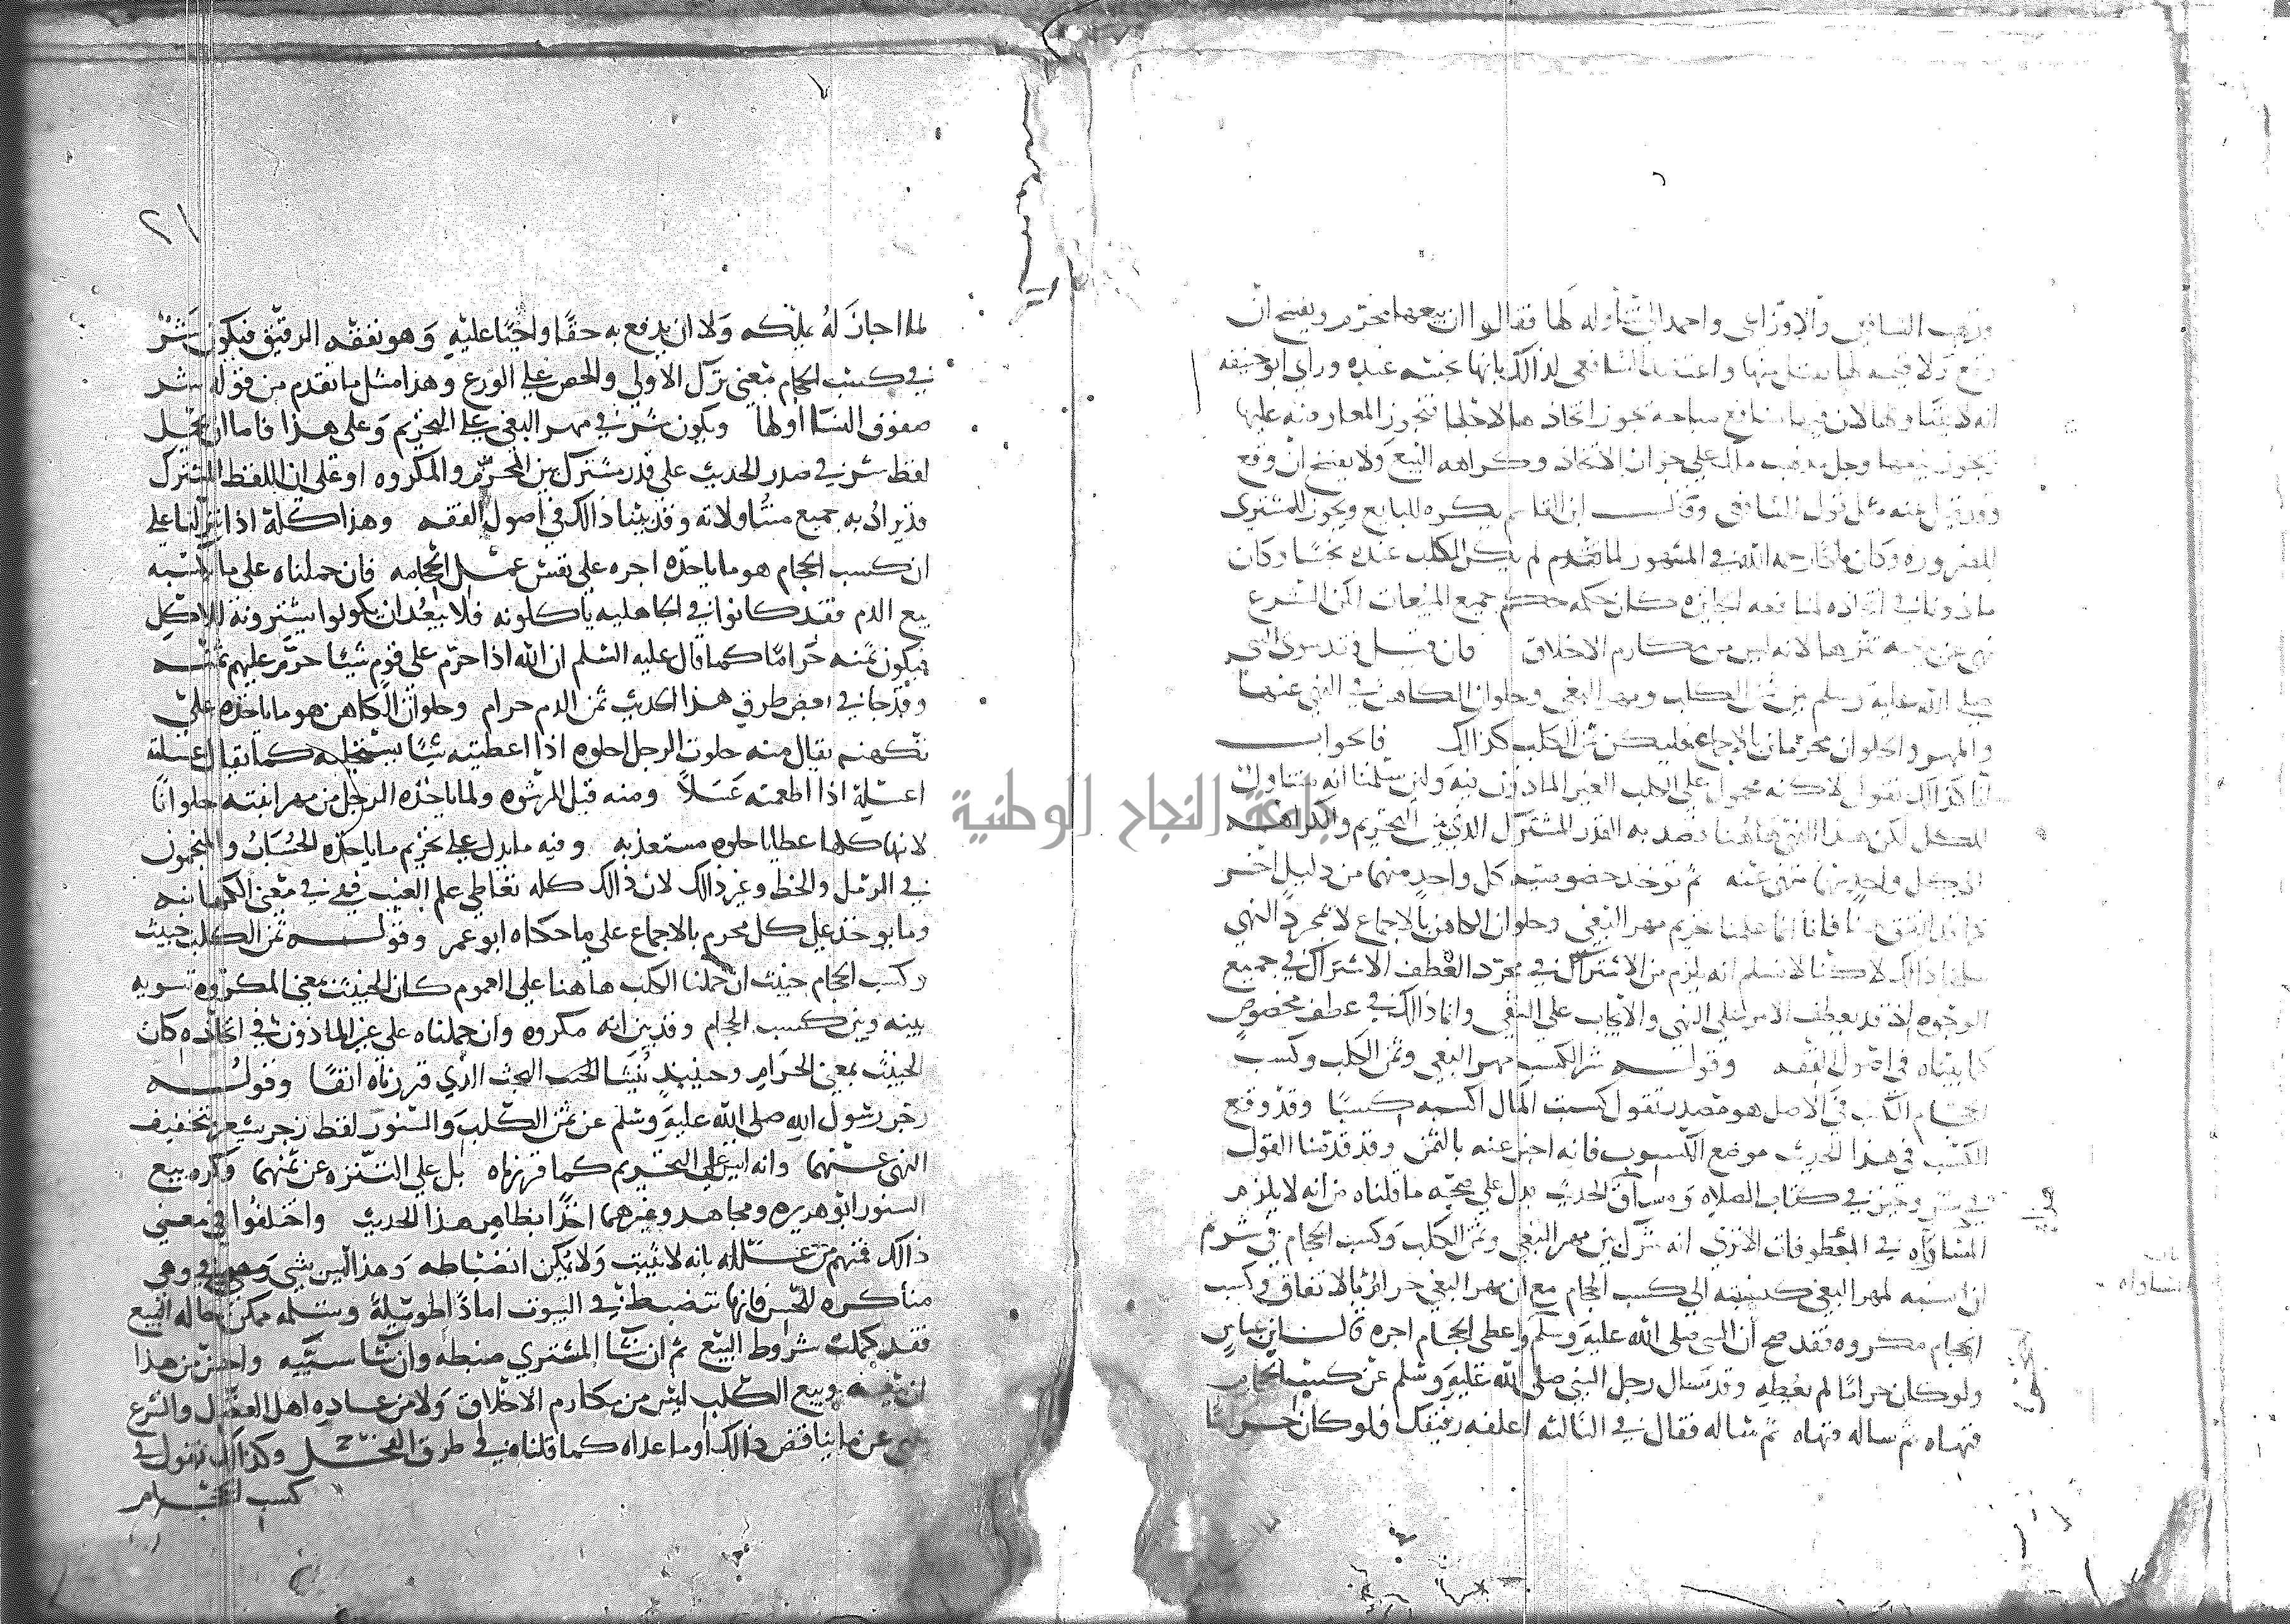 وذهب الشافعي والاوزاعي واحمد الى تناوله لها فقالوا ان بيعها محرم ويفسخ ان
وقع ولا قيمة لما يقتل منها واعتضد الشافعي لذالك بانها نجسه عنده وراي ابو حنيفه
انه لا يتناولها لان فيها منافع مباحه يجوز اتخاذها لاجلها فتجوز المعاوضه عليها
فيجوز بيعها وجل مذهب مالك على جواز الاتخاذ وكراهه البيع ولا يفسخ ان وقع
وقد قيل عنه مثل قول الشافعي وقال ابن القاسم يكره للبايع ويجوز للمشتري
للضروره وكان مالكا رحمه الله في المشهور لما تقدم لم يكن الكلب عنده نجسا وكان
ماذونا في اتخاذه لمنافعه الجايزه كان حكمه حكم جميع المبيعات لكن الشرع
نهى عن بيعه تنزيها لانه ليس من مكارم الاخلاق فان قيل فقد سوى النبي
صلى الله عليه وسلم بين ثمن الكلب ومهر البغي وحلوان الكاهن في النهي عنها
والمهر والحلوان محرمان بالاجماع فليكن ثمن الكلب كذالك فالجواب
انا كذالك نقول لاكنه محمول على الكلب الغير الماذون فيه ولين سلمنا انه يتناول
الكل لكن هذا النهي هاهنا قصد به القدر المشترك الذي بين التحريم والكراهه
اذ كل واحد منهما منهي عنه ثم توخذ خصوصيه كل واحد منهما من دليل اخر
كما قد اتفق هنا فانا انما علمنا تحريم مهر البغي وحلوان الكاهن بالاجماع لا بمجرد النهي
سلمنا ذالك لاكنا لا نسلم انه يلزم من الاشتراك في مجرد العطف الاشتراك في جميع
الوجوه اذ قد يعطف الامر على النهي والايجاب على النفي وانما ذالك في عطف مخصوص
كما بيناه في اصول الفقه وقوله شر الكسب مهر البغي وثمن الكلب وكسب
الحجام الكسب في الاصل هو مصدر تقول كسبت المال اكسبه كسبا وقد وقع
الكسب في هذا الحديث موضع المكسوب فانه اخبر عنه بالثمن وقد قدمنا القول
في شر وخير في كتاب الصلاه ومساق الحديث يدل على صحه ما قلناه من انه لا يلزم
المساواه في المعطوفات الا ترى انه شرك بين مهر البغي وثمن الكلب وكسب الحجام في شر ثم
ان نسبه لمهر البغي كنسبته الى كسب الحجام مع ان مهر البغي حرام بالاتفاق وكسب
الحجام مكروه فقد صح ان النبي صلى الله عليه وسلم واعطى الحجام اجره قال ابن عباس
ولو كان حراما لم يعطه وقد سال رجل النبي صلى الله عليه وسلم عن كسب الحجام
فنهاه ثم ساله فنهاه ثم ساله فقال في الثالثه اعلفه رقيقك فلو كان حراما
باب
المساواه
٢١
لما اجاز له تملكه ولا ان يدفع به حقا واجبا عليه وهو نفقه الرقيق فيكون شر
في كسب الحجام بمعنى ترك الاولى والحض على الورع وهذا مثل ما تقدم من قوله شر
صفوف النسا اولها ويكون شر في مهر البغي على التحريم وعلى هذا فاما ان يحمل
لفظ شر في صدر الحديث على قدر مشترك بين المحرم والمكروه او على ان اللفظ المشترك
قد يراد به جميع متناولاته وقد بينا ذالك في اصول الفقه وهذا كله اذا تنزلنا على
ان كسب الحجام هو ما ياخذه اجره على نفس عمل الحجامه فان حملناه على ما يكتسبه
بيع الدم فقد كانوا في الجاهليه ياكلونه فلا يبعد ان يكونوا يشترونه للاكل
فيكون ثمنه حراما كما قال عليه السلم ان الله اذا حرم على قوم شيئا حرم عليهم ثمنه
وقد جا في بعض طرق هذا الحديث ثمن الدم حرام وحلوان الكاهن هو ما ياخذه على
تكهنه يقال منه حلوت الرجل احلوه اذا اعطيته شيئا يستحليه كما يقال عسلته
اعسله اذا اطعمته عسلا ومنه قيل للرشوه ولما ياخذه الرجل من مهر ابنته حلوانا
لانها كلها عطايا حلوه مستعذبه وفيه ما يدل على تحريم ما ياخذه الحساب والمنجمون
في الرمل والخط وغير ذالك لان ذالك كله تعاطي علم الغيب فهي في معنى الكهانه
وما يوخذ على كل محرم بالاجماع على ما حكاه ابو عمر وقوله ثمن الكلب خبيث
وكسب الحجام خبيث ان حملنا الكلب هاهنا على العموم كان الخبيث بمعنى المكروه تسويه
بينه وبين كسب الحجام وقد بين انه مكروه وان حملناه على غير الماذون في اتخاذه كان
الخبيث بمعنى الحرام وحينيذ ينشا البحث الذي قررناه انفا وقوله
زجر رسول الله صلى الله عليه وسلم عن ثمن الكلب والسنور لفظ زجر يشعر بتخفيف
النهي عنهما وانه ليس على التحريم كما قررناه بل على التنزه عن ثمنهما وكره بيع
السنور ابو هريره ومجاهد وغيرهما اخذا بظاهر هذا الحديث واختلفوا في معنى
ذالك فمنهم من علله بانه لا يثبت ولا يمكن انضباطه وهذا ليس بشي وهي
مناكره للحس فانها تنضبط في البيوت امادا طويله وتسلمه ممكن حاله البيع
فقد كملت شروط البيع ثم ان شا المشتري ضبطه وان شا سيبه واحسن من هذا
ان بيعه وبيع الكلب ليس من مكارم الاخلاق ولا من عاده اهل الفضل والشرع
ينهى عن ما يناقض ذالك او ما عداه كما قلناه في طرق الفحل وكذالك نقول في
كسب الحجام
جامعة النجاح الوطنية